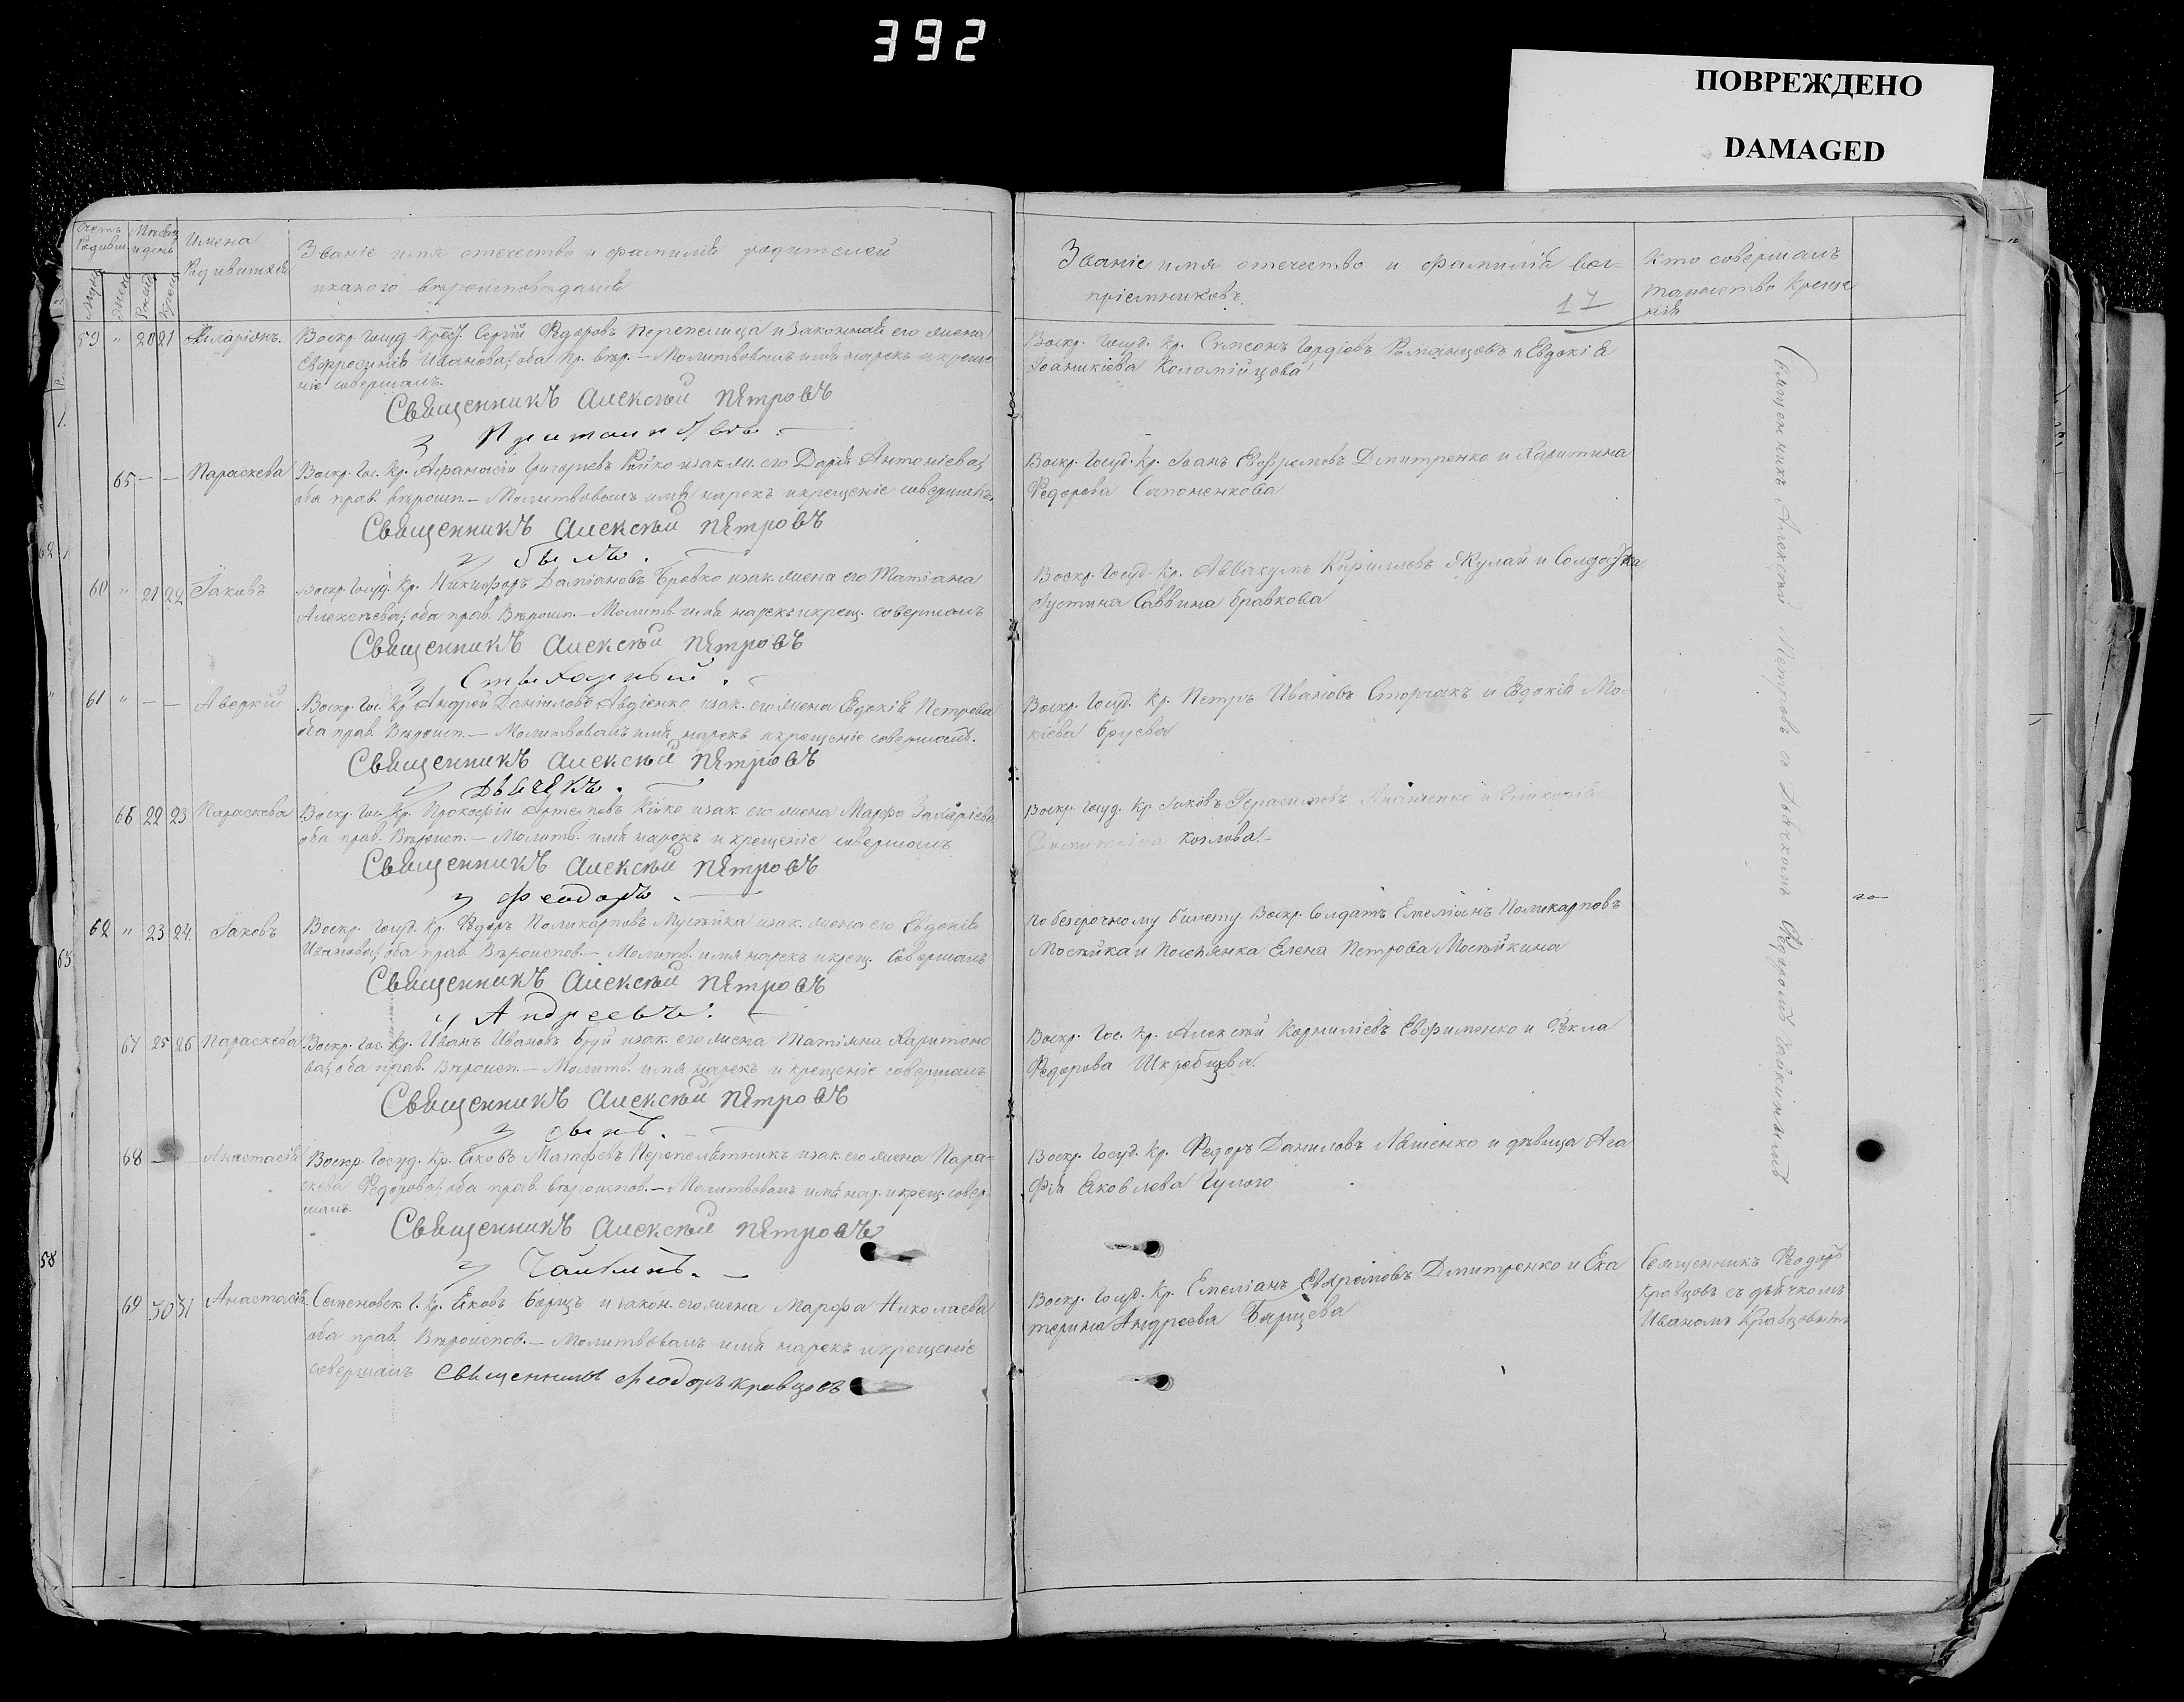 392
ПОВРЕЖДЕНО
DAMAGED
Имена
Родившихся
Званіе имя отечество и фамилія родителей
и какого вѣроисповѣданія
59 " 20 21 Иларіонъ. Воскр. Госуд. Крест. Сергій Ѳедоровъ Перепелица и законная его жена
Евфросинія Иванова; оба пр. вѣр. — Молитвовалъ имя нарекъ и креще
ніе совершалъ.
Священникъ Алексѣй Петровъ
65 — — Параскева Воскр. Гос. Кр. Аѳанасій Григорьевъ и зак. ж. его Дарія Антоніева;
оба прав. вѣроисп. — Молитвовалъ имя нарекъ и крещеніе совершалъ.
Священникъ Алексѣй Петровъ
былъ.
60 " 21 22 Іаковъ Воскр. Госуд. Кр. Никифоръ Даміановъ Бровко и зак. жена его Татіана
Алексѣева; оба прав. Вѣроисп. — Молитв. имя нарекъ и крещ. совершалъ
Священникъ Алексѣй Петровъ
61 " — — Аверкій Воскр. Гос. Кр. Андрей Даніиловъ Авдіенко и зак. его жена Евдокія Петрова
оба прав. Вѣроисп. — Молитвовалъ имя нарекъ и крещеніе совершалъ.
Священникъ Алексѣй Петровъ
дьячекъ.
66 22 23 Параскева Воскр. Гос. Кр. Прокофій Артемовъ Кійко и зак. его жена Марфа Захаріева
оба прав. Вѣроисп. — Молитв. имя нарекъ и крещеніе совершалъ
Священникъ Алексѣй Петровъ
Феодоръ.
62 " 23 24 Іаковъ Воскр. Госуд. Кр. Ѳедоръ Поликарповъ и зак. жена его Евдокія
Иванова; оба прав. Вѣроиспов. — Молитв. имя нарекъ и крещ. Совершалъ
Священникъ Алексѣй Петровъ
Андреевъ.
67 25 26 Параскева Воскр. Гос. Кр. Иванъ Ивановъ Бруй и зак. его жена Татіяна Харитоно
ва; оба прав. Вѣроисп. — Молитв. имя нарекъ и крещеніе совершалъ
Священникъ Алексѣй Петровъ
сынъ.
68 — — Анастасія Воскр. Госуд. Кр. Яковъ Матфѣевъ Перепелятникъ и зак. его жена Пара-
скева Ѳедорова; оба прав. вѣроиспов. — Молитвовалъ имя нар. и крещ. совер-
шалъ.
Священникъ Алексѣй Петровъ
Чайкинъ.
69 30 31 Анастасія Семеновск. Г. Кр. Яковъ Борщъ и закон. его жена Марфа Николаева
оба прав. Вѣроиспов. — Молитвовалъ имя нарекъ и крещеніе
совершалъ Священникъ Феодоръ Кравцовъ
Званіе имя отечество и фамилія вос-
пріемниковъ.
17
Кто совершалъ
таинство Креще
нія
Воскр. Госуд. Кр. Симеонъ Гордіевъ Романцовъ и Евдокія
Іоаникіева Коломійцова
Воскр. Госуд. Кр. Іоанъ Евфремовъ Дмитренко и Харитина
Ѳедорова Сапоненкова
Воскр. Госуд. Кр. Аввакумъ Кирилловъ Якулай и Солдатка
Іустина Саввина Бравкова
Воскр. Госуд. Кр. Петръ Ивановъ Сторчакъ и Евдокія Мо-
кіева Бруева
Воскр. Госуд. Кр. Іаковъ Герасимовъ и
Козлова. —
по безсрочному билету Воскр. Солдатъ Емеліянъ Поликарповъ
Мосѣйка и Поселянка Елена Петрова Мосѣйкина
Воскр. Гос. Кр. Алексѣй Корниліевъ Евфименко и Ѳекла
Ѳедорова Шкребцева.
Воскр. Госуд. Кр. Ѳедоръ Даниловъ Ляшенко и дѣвица Ага
фія Яковлева Гулого
Воскр. Госуд. Кр. Емеліанъ Евфремовъ Дмитренко и Ека
терина Андреева Борщева
Священникъ Алексѣй Петровъ съ дьячкомъ Ѳедоромъ Чайкинымъ
Священникъ Ѳеодоръ
Кравцовъ съ дьячкомъ
Иваномъ Кравцовымъ
58